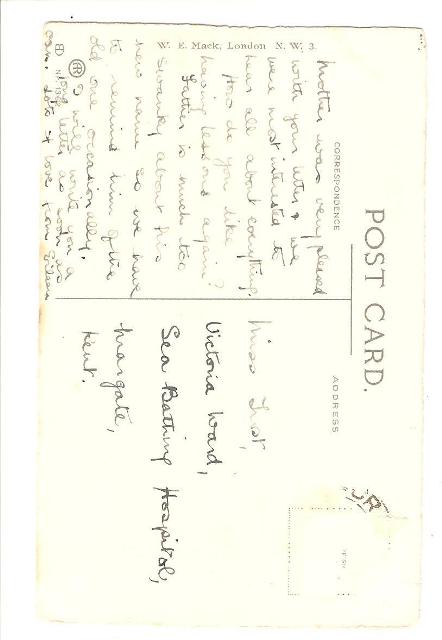 POST CARD.
CORRESPONDENCE
ADDRESS
Mother was very pleased
with your letter & we
were most interested to
hear all about everything.
How do you like
having lessons again?
Father is much too
swanky about his
new name so we have
to remind him of the
old one occasionally.
I will write you a
long letter as soon as
can. Lots of love from Eileen
Miss Trot,
Victoria Ward,
Sea Bathing Hospital,
Margate,
Kent.
W. E. Mack, London N. W. 3.